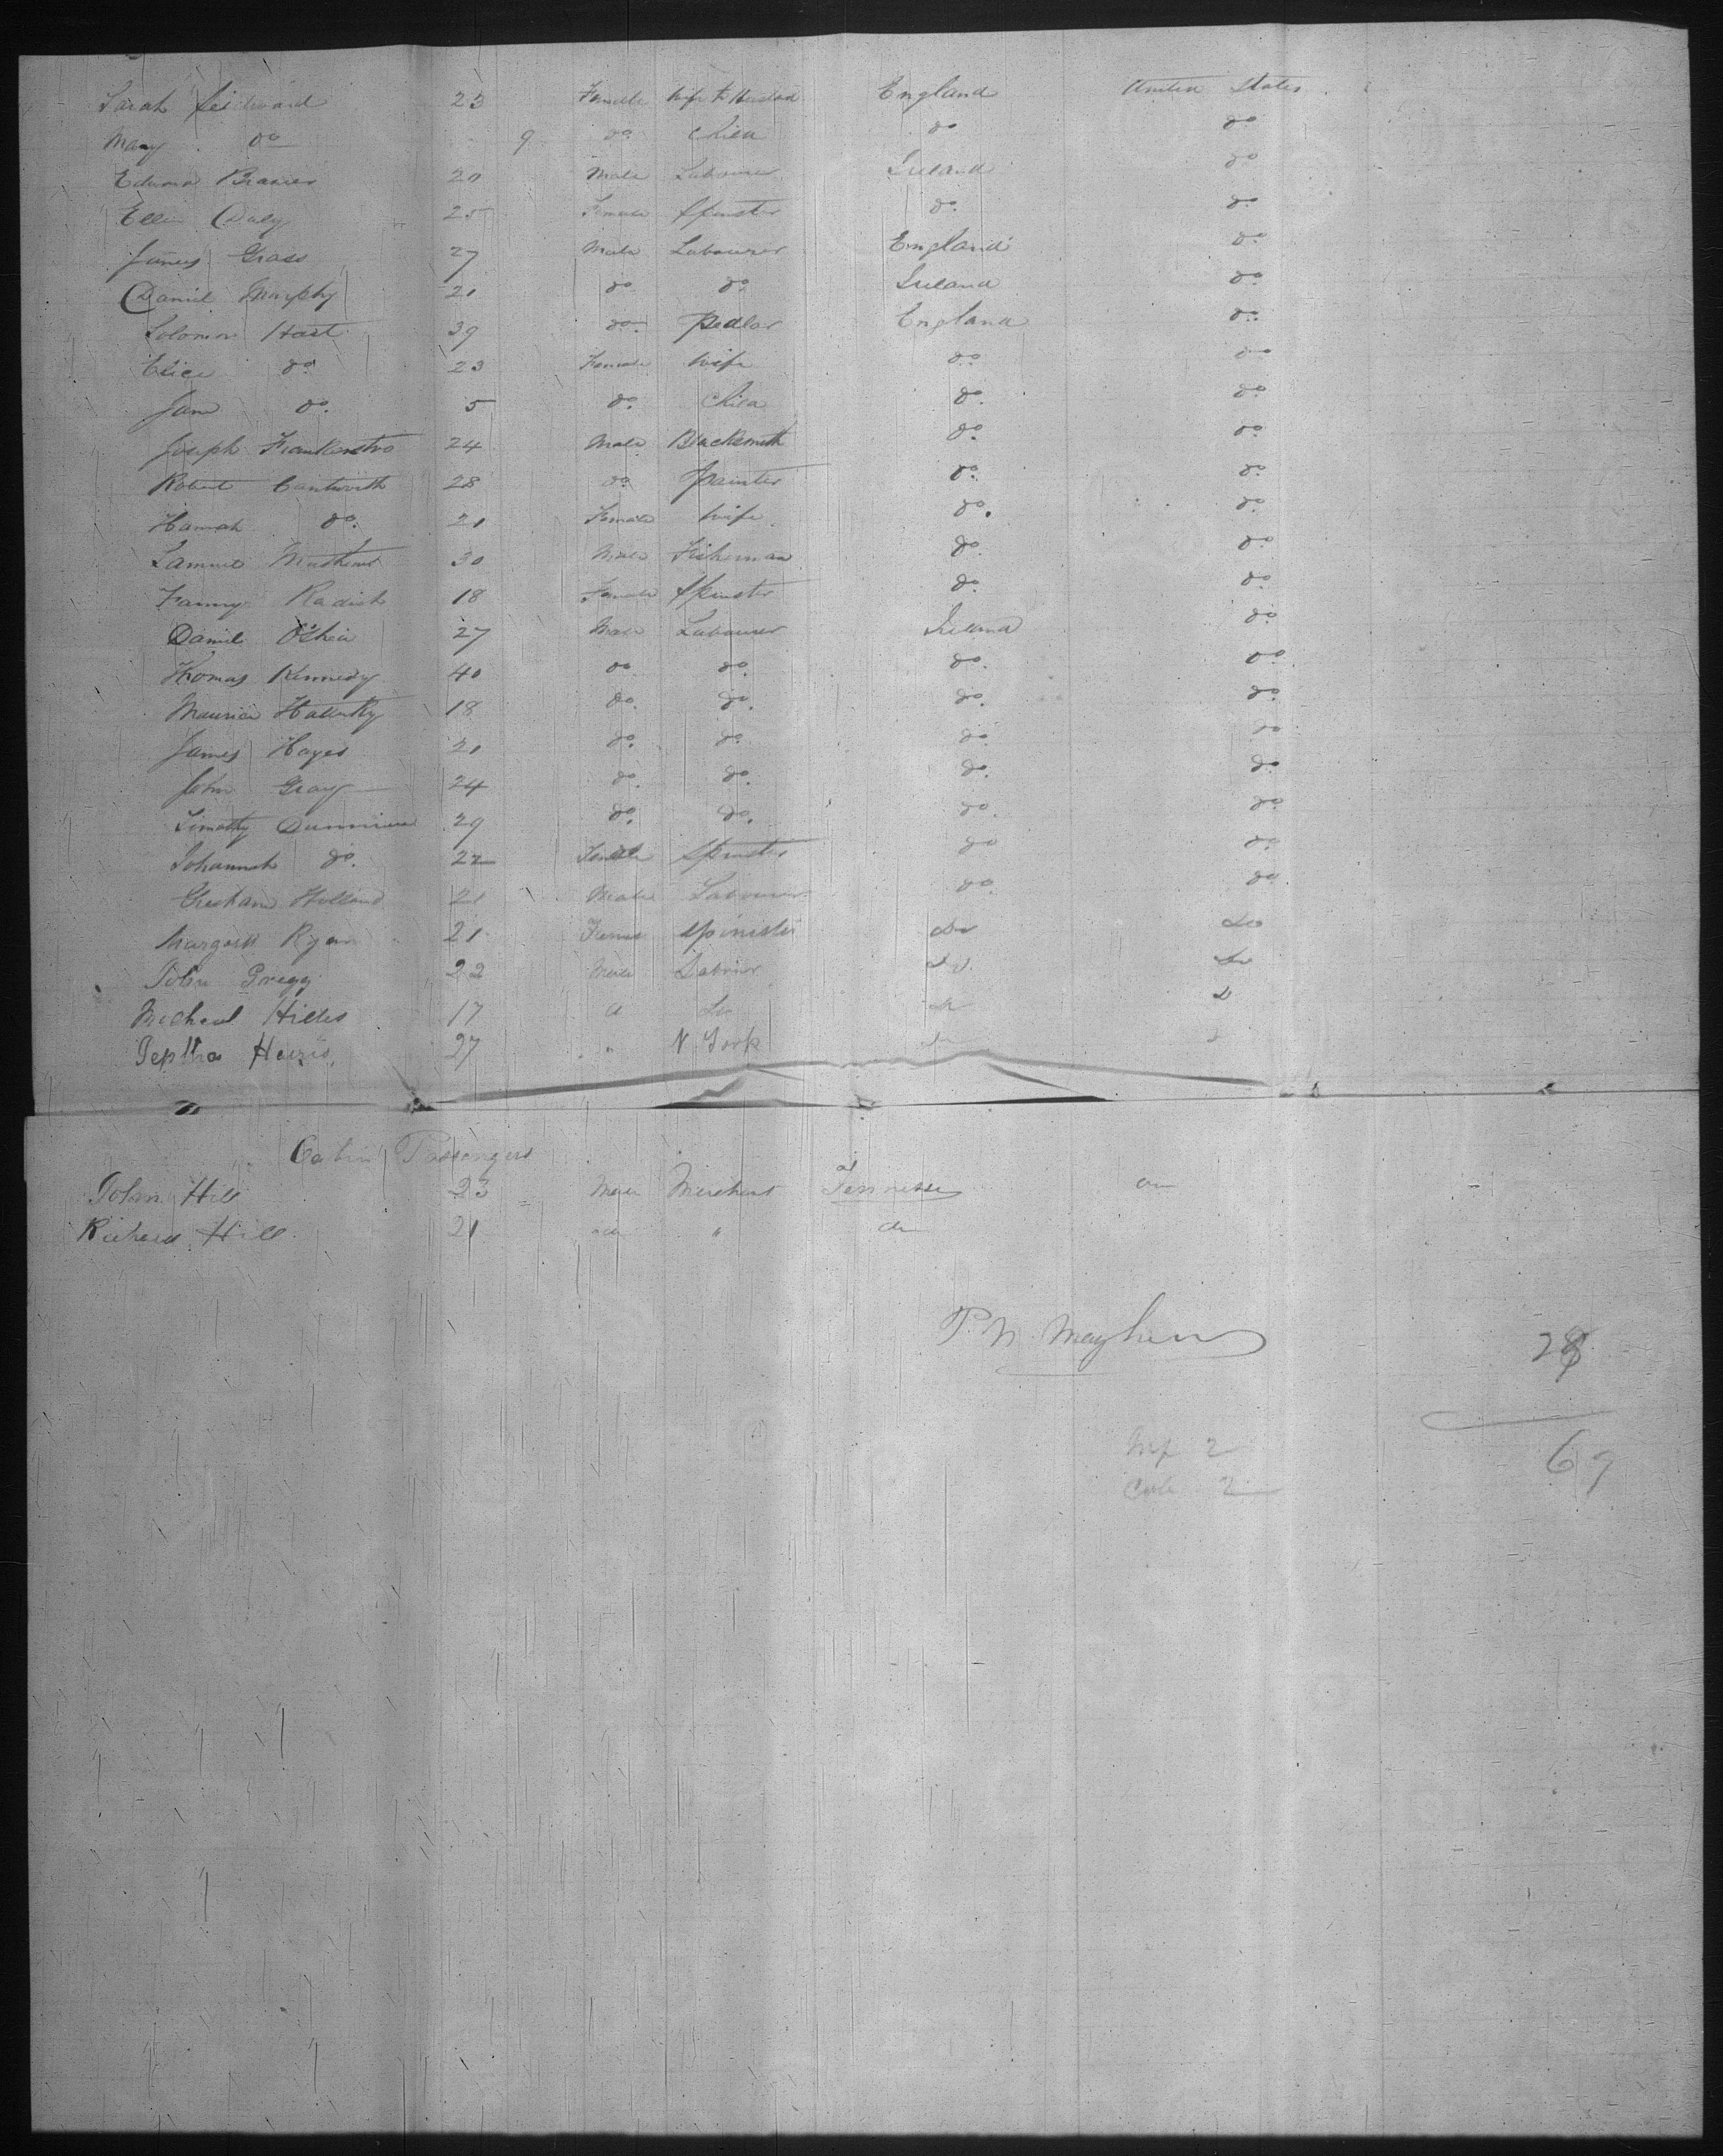 Sarah 23 Female Wife to Husband England United States
Mary do 9 do Child do do
Edward Brasier 20 Male Labourer Ireland do
Ellen Daly 25 Female Spinster do do
James Grass 27 Male Labourer England do
Daniel Murphy 21 do do Ireland do
Solomon Hart 39 do Pedlar England do
Elice do 23 Female Wife do do
Jane do 5 do Child do do
Joseph 24 Male Blacksmith do do
Robert 28 do Painter do do
Hannah do 21 Female Wife do do
Samuel 30 Male Fisherman do do
Fanny Radish 18 Female Spinster do do
Daniel O'Shea 27 Male Labourer Ireland do
Thomas Kennedy 40 do do do do
Maurice 18 do do do do
James Hayes 21 do do do do
John Gray 24 do do do do
Timothy 29 do do do do
Johannah do 22 Female Spinster do do
Holland 21 Male Labourer do do
Margaret Ryan 21 Spinister do do
John Gregg 22 Male do do
Micheal Hilles 17 do do do
Jeptha 27 " N York
Cabin Passengers
John Hill 23 Male Merchant Tennessee
Richard Hill 21 do " do
P. N. Mayhew
28
Inf 2
69
2